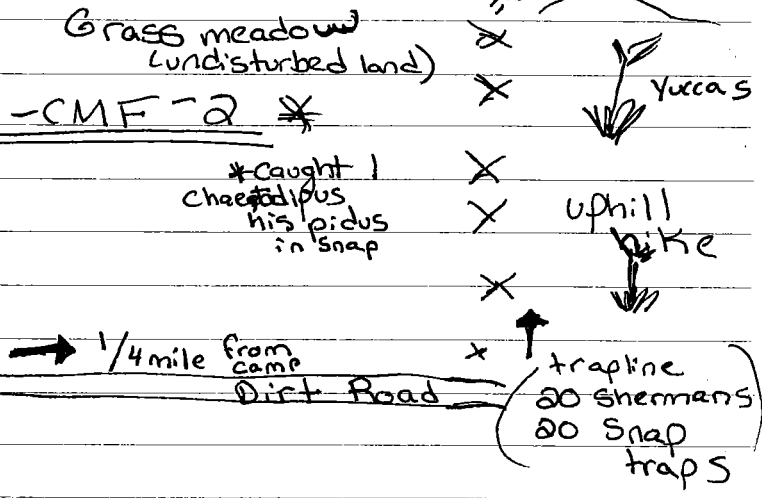 Grass meadow
(undisturbed land)
Yuccas
-CMF-2 *
*caught 1
Chaetodipus
hispidus
in snap
uphill
hike
→ 1/4 mile from
camp
Dirt Road
(trapline
20 shermans
20 Snap
traps)